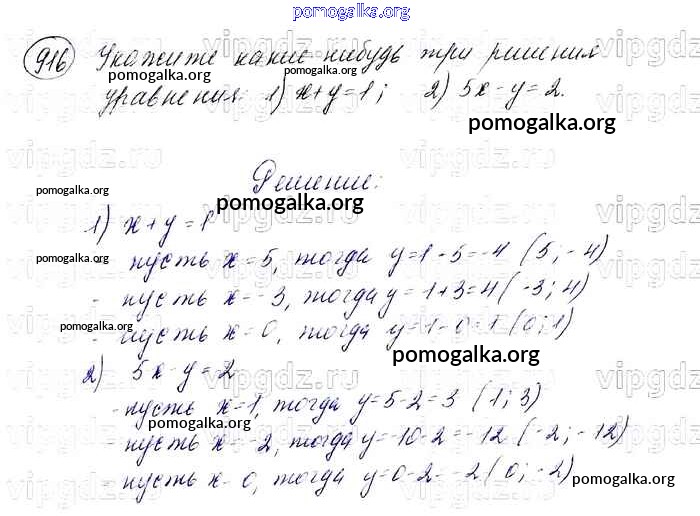 pomogalka.org
916 Укажите какие нибудь три решения
pomogalka.org pomogalka.org
уравнения: 1) x+y=1; 2) 5x-y=2.
pomogalka.org
Решение:
pomogalka.org
pomogalka.org
1) x+y=1
пусть x=5, тогда y=1-5=-4 (5;-4)
pomogalka.org
- пусть x=-3, тогда y=1+3=4 (-3;4)
- пусть x=0, тогда y=1-0=1 (0;1)
pomogalka.org
pomogalka.org
2) 5x-y=2
- пусть x=1, тогда y=5-2=3 (1;3)
pomogalka.org
- пусть x=-2, тогда y=-10-2=-12 (-2;-12)
- пусть x=0, тогда y=0-2=-2 (0;-2)
pomogalka.org
pomogalka.org
vipgdz.ru